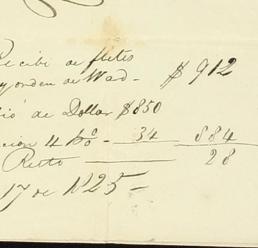 Recibi de fletes
y orden de Wad- $912
ió de Dollar $850
cion 4 p% - 34 884
Resto 28
17 de 1825=